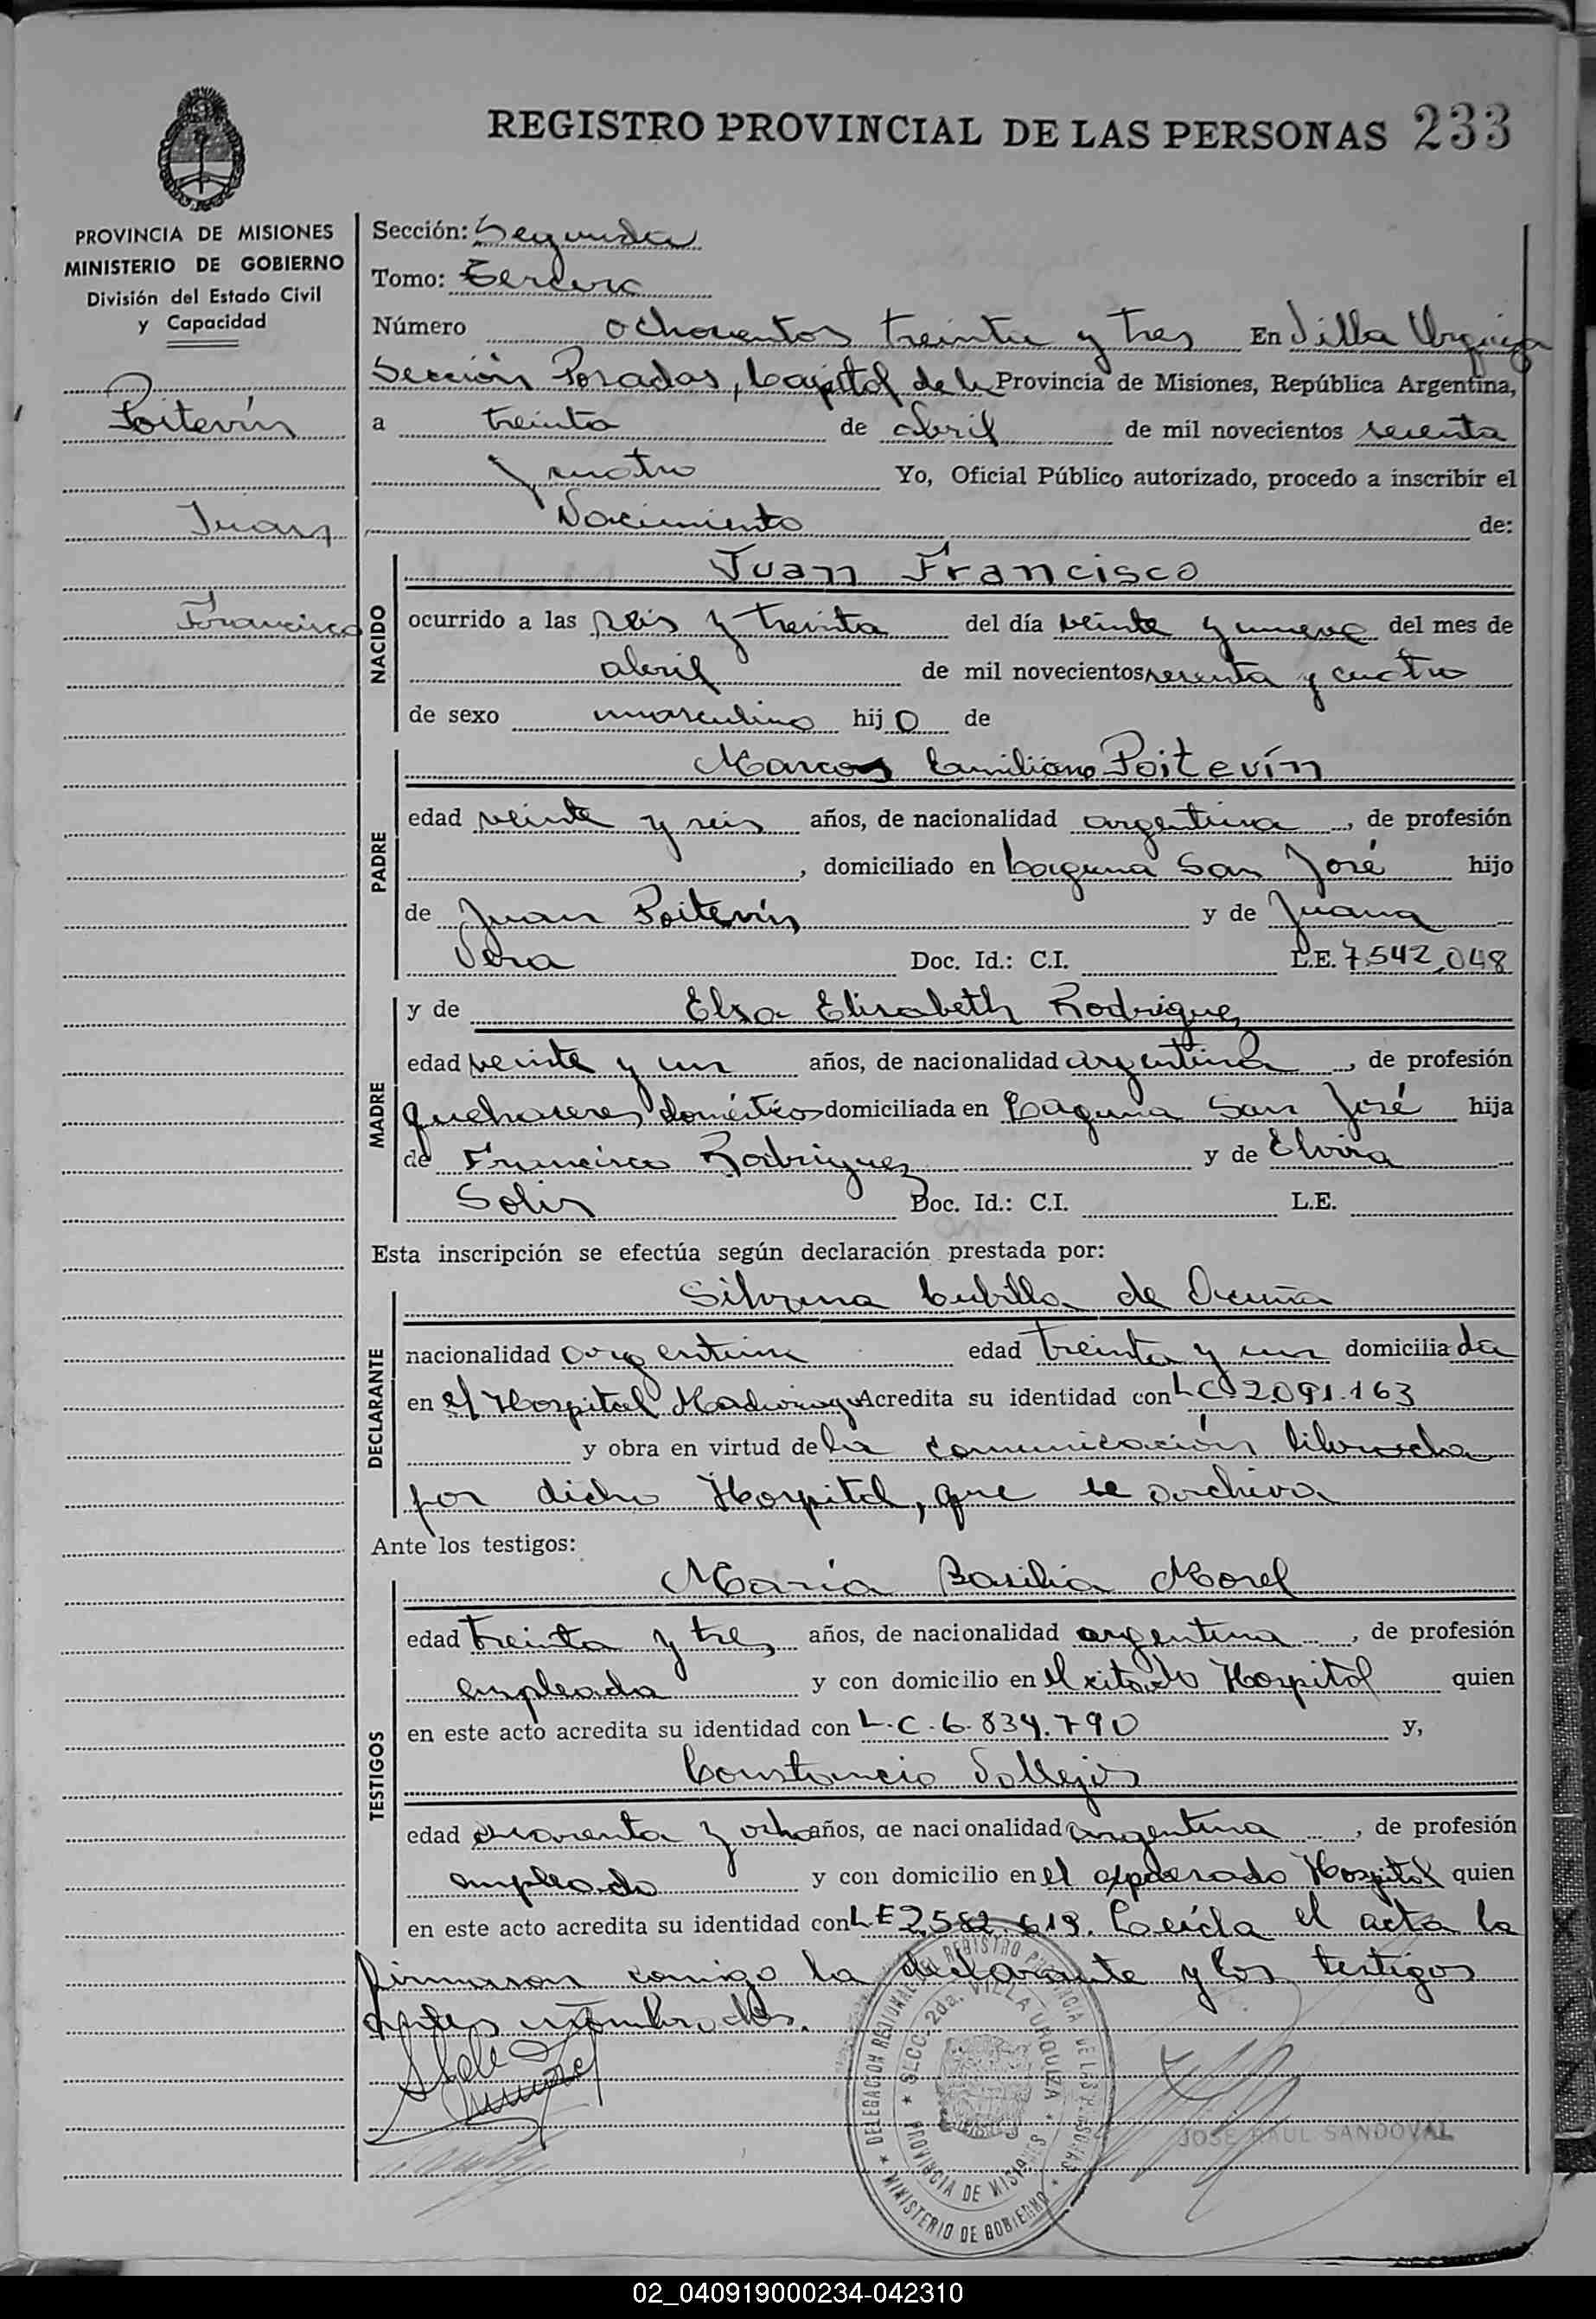 REGISTRO PROVINCIAL DE LAS PERSONAS 233
PROVINCIA DE MISIONES
MINISTERIO DE GOBIERNO
División del Estado Civil
y Capacidad
Poitevín
Juan
Francisco
Sección: Segunda
Tomo: Tercero
Número ochocientos treinta y tres En Villa Urquiza
Sección Posadas, Capital de la Provincia de Misiones, República Argentina,
a treinta de abril de mil novecientos sesenta
y cuatro Yo, Oficial Público autorizado, procedo a inscribir el
Nacimiento de:
NACIDO
Juan Francisco
ocurrido a las seis y treinta del día veinte y nueve del mes de
abril de mil novecientos sesenta y cuatro
de sexo masculino hijo de
PADRE
Marcos Emiliano Poitevín
edad veinte y seis años, de nacionalidad argentina, de profesión
, domiciliado en Laguna San José hijo
de Juan Poitevín y de Juana
Vera Doc. Id.: C.I. L.E. 7.542.048
MADRE
y de Elsa Elisabeth Rodriguez
edad veinte y un años, de nacionalidad argentina, de profesión
quehaceres domésticos domiciliada en Laguna San José hija
de Francisco Rodriguez y de Elvira
Solis Doc. Id.: C.I. L.E.
Esta inscripción se efectúa según declaración prestada por:
DECLARANTE
Silvana Cubilla de Acuña
nacionalidad argentina edad treinta y un domiciliada
en el Hospital Madariaga Acredita su identidad con L C 2.091.163
y obra en virtud de la comunicación librada
por dicho Hospital, que se archiva
Ante los testigos:
TESTIGOS
María Basilia Morel
edad treinta y tres años, de nacionalidad argentina, de profesión
empleada y con domicilio en el citado Hospital quien
en este acto acredita su identidad con L.C. 6.834.790 y,
Constancio Vallejos
edad cuarenta y ocho años, de nacionalidad argentina, de profesión
empleado y con domicilio en el expresado Hospital quien
en este acto acredita su identidad con L E 2.582.619. Leída el acta la
firmaron conmigo la declarante y los testigos
antes nombrados.
DELEGACION REGIONAL REGISTRO PROVINCIAL DE LAS PERSONAS
SECC. 2da. VILLA URQUIZA
PROVINCIA DE MISIONES
MINISTERIO DE GOBIERNO
JOSE RAUL SANDOVAL
02_040919000234-042310